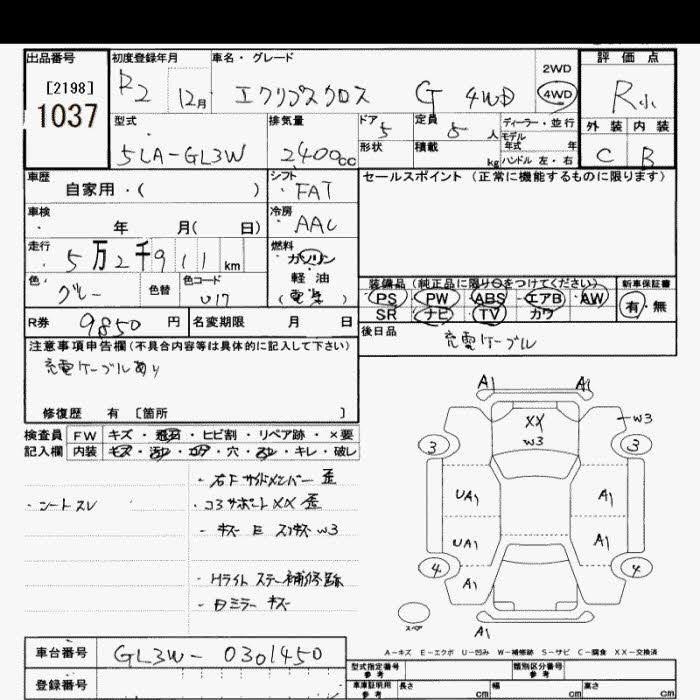 出品番号 初度登録年月 車名・グレード 評価点
[2198]
1037
R2 12月 エクリプスクロス G 4WD
2WD
4WD
R小
型式 排気量 ドア 定員 ディーラー・並行
5LA-GL3W 2400cc 5 5人
形状 積載 kg
モデル年式 年
ハンドル 左・右
外装 内装
C B
車歴 シフト セールスポイント (正常に機能するものに限ります)
自家用・( ) ・FAT
車検 冷房
年 月( 日) ・AAC
走行 燃料
5万2千911km ガソリン
軽・油
(電気)
色 色替 色コード
グレー U17
装備品 (純正品に限り○をつけてください) 新車保証書
PS PW ABS エアB AW 有・無
SR ナビ TV カワ
R券 9850円 名変期限 月 日
後日品 充電ケーブル
注意事項申告欄(不具合内容等は具体的に記入して下さい)
充電ケーブルあり
修復歴 有 [箇所 ]
検査員 FW キズ・飛石・ヒビ割・リペア跡・×要
記入欄 内装 キズ・汚れ・コゲ・穴・スレ・キレ・破レ
・シートスレ
・右Fサイドメンバー 歪
・コアサポートXX 歪
・キズ E スリキズ W3
・Hライト ステー補修跡
・Dミラー キズ
A1 A1
XX
W3
W3
3 3
UA1 A1
UA1 A1
4 4
A1
スペア
A1
A-キズ E-エクボ U-凹み W-補修跡 S-サビ C-腐食 XX-交換済
車台番号 GL3W-0301450
登録番号
型式指定番号 参考 類別区分番号 参考
車庫証明用 参考 長さ cm 幅 cm 高さ cm